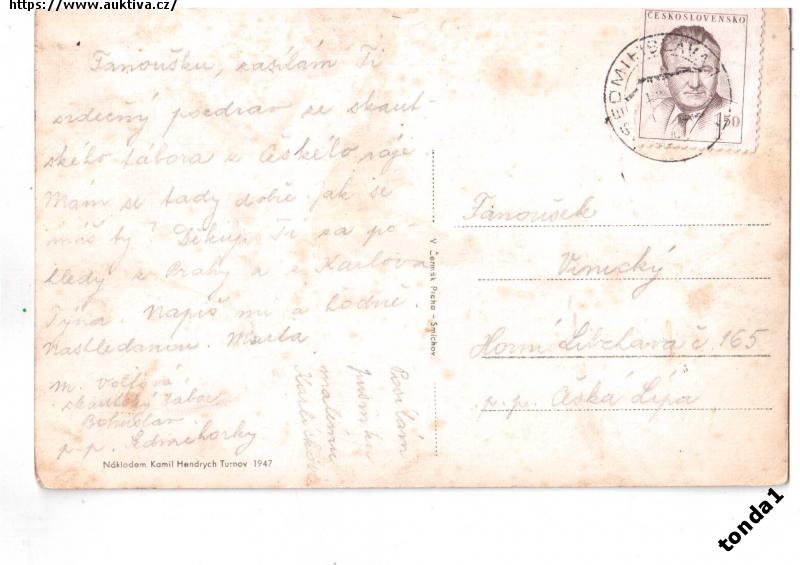 https://www.auktiva.cz/
ČESKOSLOVENSKO
1.50
Tanoušku, zasílám Ti
srdečný pozdrav ze skaut-
ského tábora z Českého ráje
Mám se tady dobře jak se
máš ty? Děkuji Ti za po-
hledy z Prahy a z Karlova
Týna. Napiš mi a hodně.
Nashledanou. Marta
M. Volfová
skautský tábor
Bohuslav
p.p.
Posílám
pusinku
malému
V. Čermák Praha - Smíchov
Tanoušek
Vinický
Horní Libchava č. 165
p.p. Česká Lípa
Nákladem Kamil Hendrych Turnov 1947
tonda1